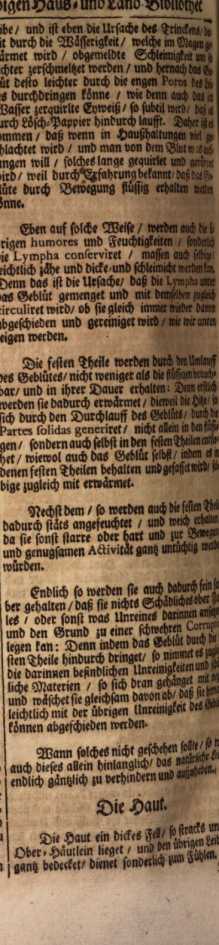 bigen Haus- und Land-Bibliothec
be / und ist eben die Ursache des Trinckens / da
it durch die Wässerigkeit / welche im Magen
ärmet wird / obgemeldte Schleimigkeit um
chter zerschmeltzet werden / und hernach das
üt desto leichter durch die engen Poros des
s durchdringen könne / wie denn auch das
Wasser zerquirlte Eyweiß / so subtil wird / daß
urch Lösch-Pappier hindurch laufft. Daher ist
ommen / daß wenn in Haußhaltungen viel
hlachtet wird / und man von dem Blut
ungen will / solches lange gequirlet und
ird / weil durch Erfahrung bekannt / daß das
lüte durch Bewegung flüssig erhalten werden
önne.
Eben auf solche Weise / werden auch die
rigen humores und Feuchtigkeiten / sonderlich
ie Lympha conserviret / massen auch selbige
eichtlich zähe und dicke und schleimicht werden kan.
Denn das ist die Ursache / daß die Lympha unter
as Geblüt gemenget und mit demselben zugleich
circuliret wird / ob sie gleich immer wieder davon
abgeschieden und gereiniget wird / wie wir unten
eigen werden.
Die festen Theile werden durch den Umlauff
des Geblütes / nicht weniger als die flüssigen
bar / und in ihrer Dauer erhalten: Denn erstlich
werden sie dadurch erwärmet / dieweil die Hitze / so
sich durch den Durchlauff des Geblüts / durch die
Partes solidas generiret / nicht allein in den
gen / sondern auch selbst in den festen Theilen
het / wiewol auch das Geblüt selbst / indem es
denen festen Theilen behalten und gefasset wird /
bige zugleich mit erwärmet.
Nechst dem / so werden auch die festen Theile
dadurch stäts angefeuchtet / und weich erhalten
da sie sonst starre oder hart und zur Bewegung
und genugsamen Activität gantz untüchtig
würden.
Endlich so werden sie auch dadurch fein
ber gehalten / daß sie nichts Schädliches oder
les / oder sonst was Unreines darinnen
und den Grund zu einer schwehren
legen kan: Denn indem das Geblüt durch die
sten Theile hindurch dringet / so nimmet es
die darinnen befindlichen Unreinigkeiten und
liche Materien / so sich dran gehänget mit
und wäschet sie gleichsam davon ab / daß sie
leichtlich mit der übrigen Unreinigkeit des
können abgeschieden werden.
Wann solches nicht geschehen sollte / so
auch dieses allein hinlänglich / das natürliche
endlich gäntzlich zu verhindern und aufzuheben.
Die Haut.
Die Haut ein dickes Fell / so stracks
Ober-Häutlein lieget / und den übrigen Leib
gantz bedecket / dienet sonderlich zum Fühlen.